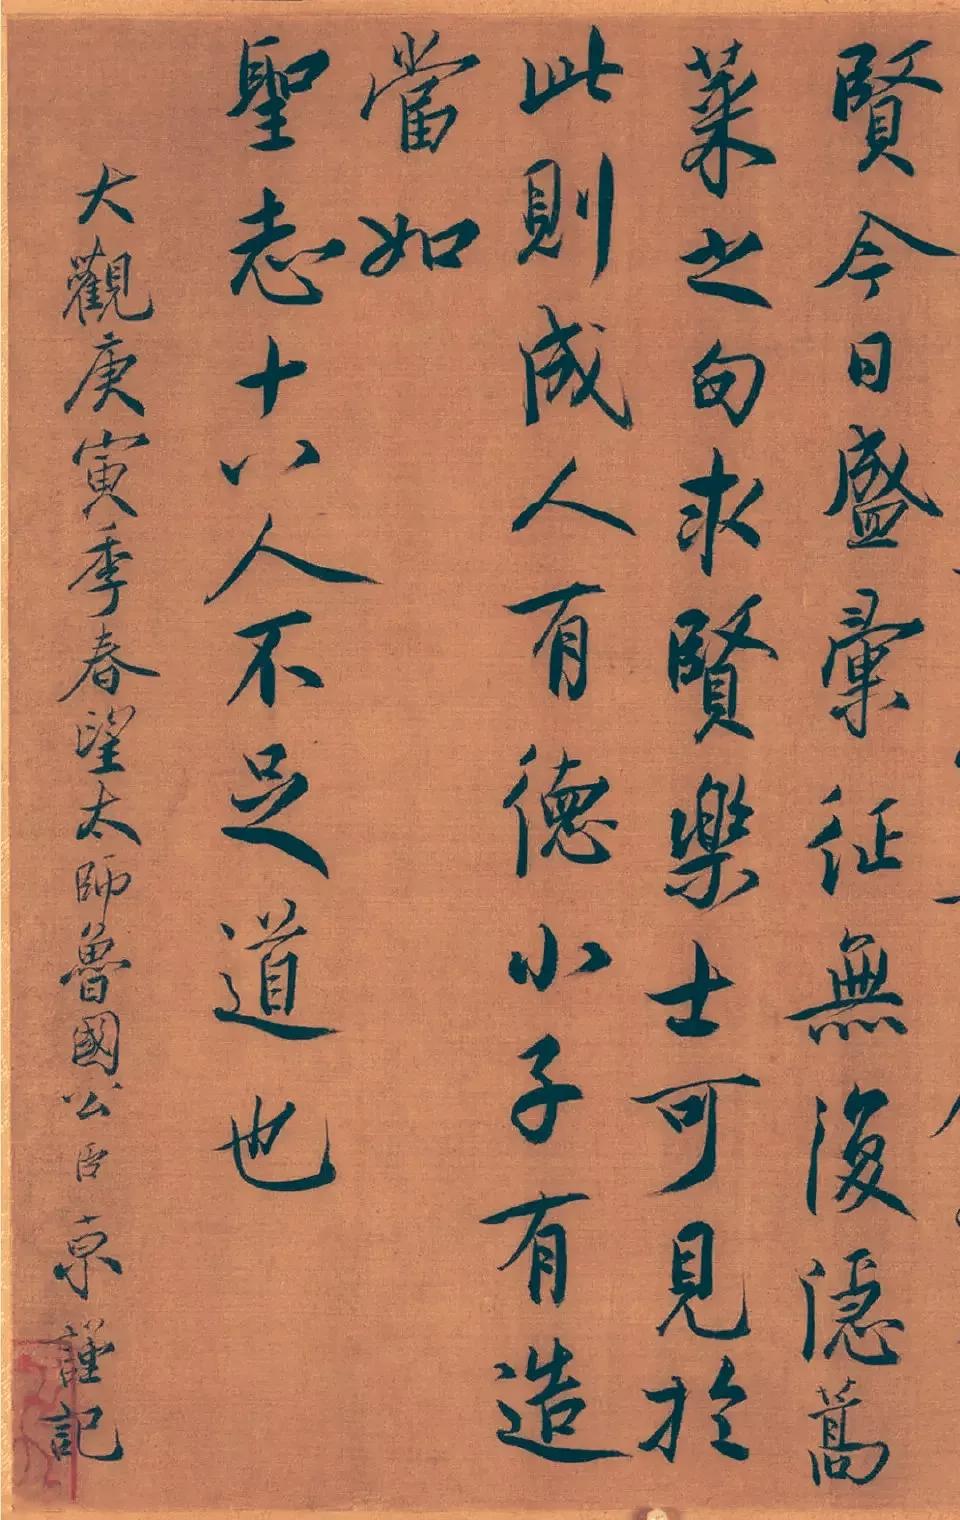 賢今日盛彙征無復隱蒿
萊之句求賢樂士可見於
此則成人有德小子有造
當如
聖志十八人不足道也
大觀庚寅季春望太師魯國公臣京謹記